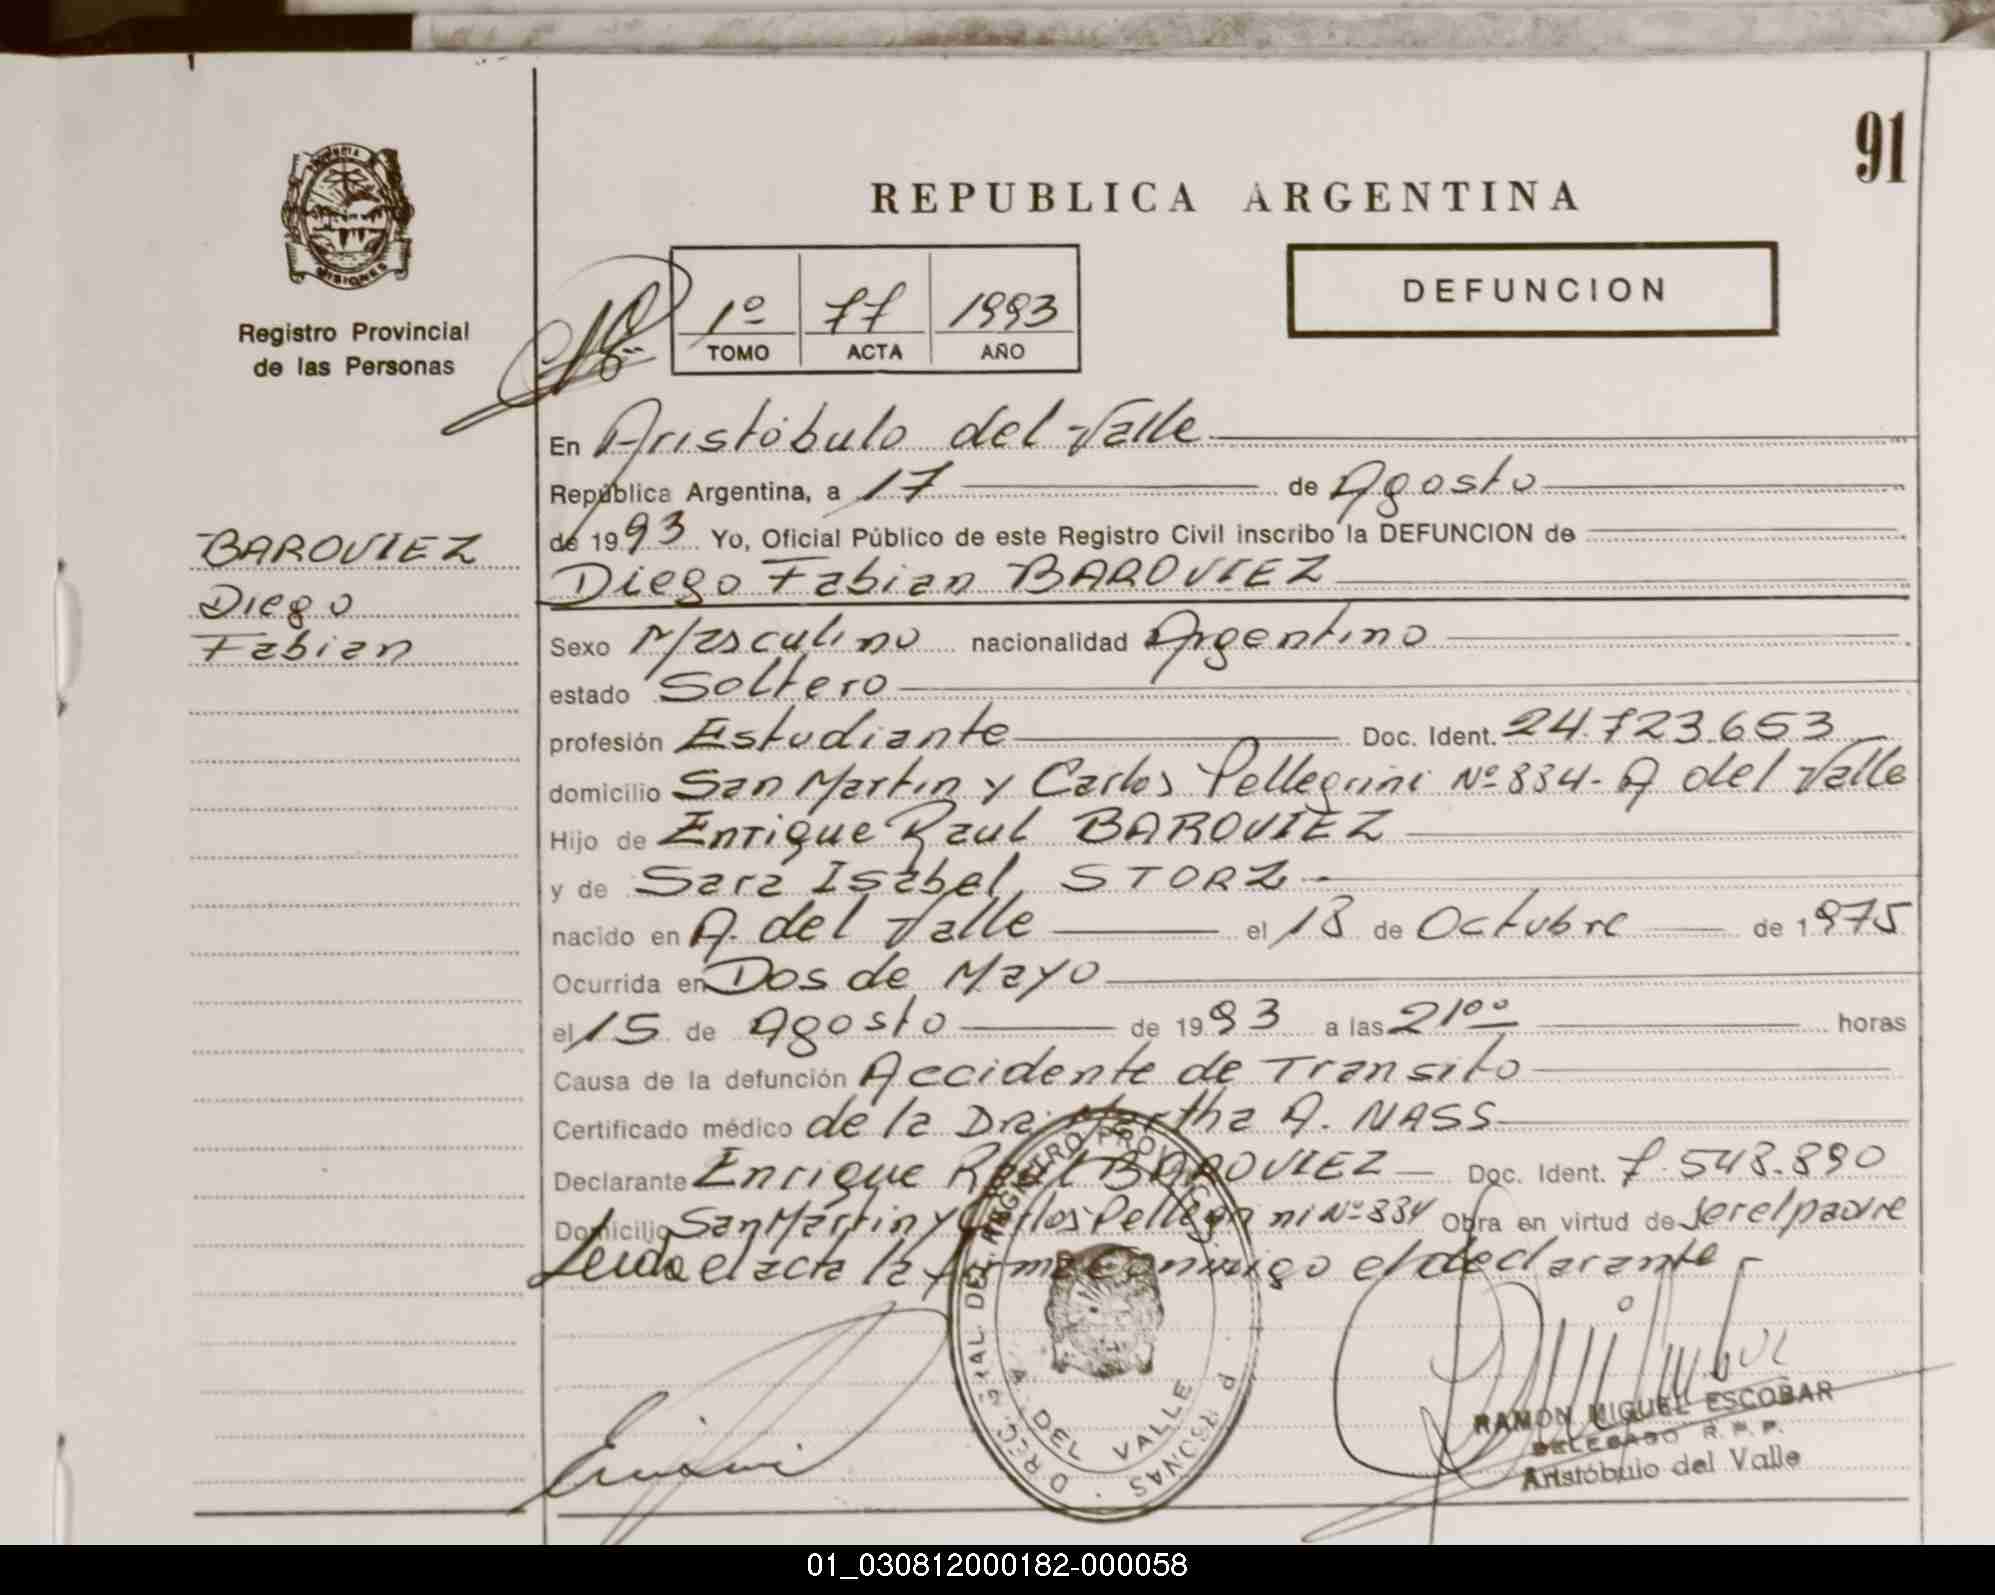 91
REPUBLICA ARGENTINA
MISIONES
Registro Provincial
de las Personas
1º 77 1993
TOMO ACTA AÑO
DEFUNCION
En Aristóbulo del Valle
República Argentina, a 17 de Agosto
de 1993 Yo, Oficial Público de este Registro Civil inscribo la DEFUNCION de
BAROVIEZ
Diego
Fabian
Diego Fabian BAROVIEZ
Sexo Masculino nacionalidad Argentino
estado Soltero
profesión Estudiante Doc. Ident. 24.723.653
domicilio San Martin y Carlos Pellegrini Nº 334- A del Valle
Hijo de Enrique Raul BAROVIEZ
y de Sara Isabel STORZ.-
nacido en A. del Valle el 13 de Octubre de 1975
Ocurrida en Dos de Mayo
el 15 de Agosto de 1993 a las 21ºº horas
Causa de la defunción Accidente de Transito
Certificado médico de la Dra. Martha A. NASS
Declarante Enrique Raul BAROVIEZ Doc. Ident. 7.548.890
Domicilio San Martin y Carlos Pellegrini Nº 334 Obra en virtud de ser el padre
Leida el acta la firma conmigo el declarante-
A. DEL VALLE
RAMON MIGUEL ESCOBAR
DELEGADO R. P. P.
Aristóbulo del Valle
01_030812000182-000058